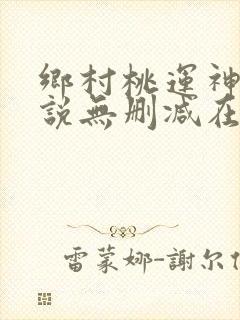 鄉村桃運神
說無刪減在
雷蒙娜-謝尔